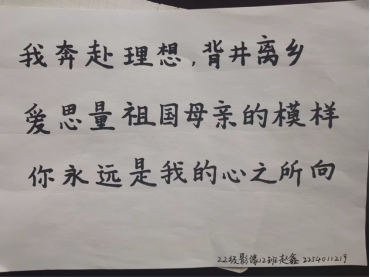 我奔赴理想,背井离乡
爱思量祖国母亲的模样
你永远是我的心之所向
22级影像12班赵鑫 2254011219